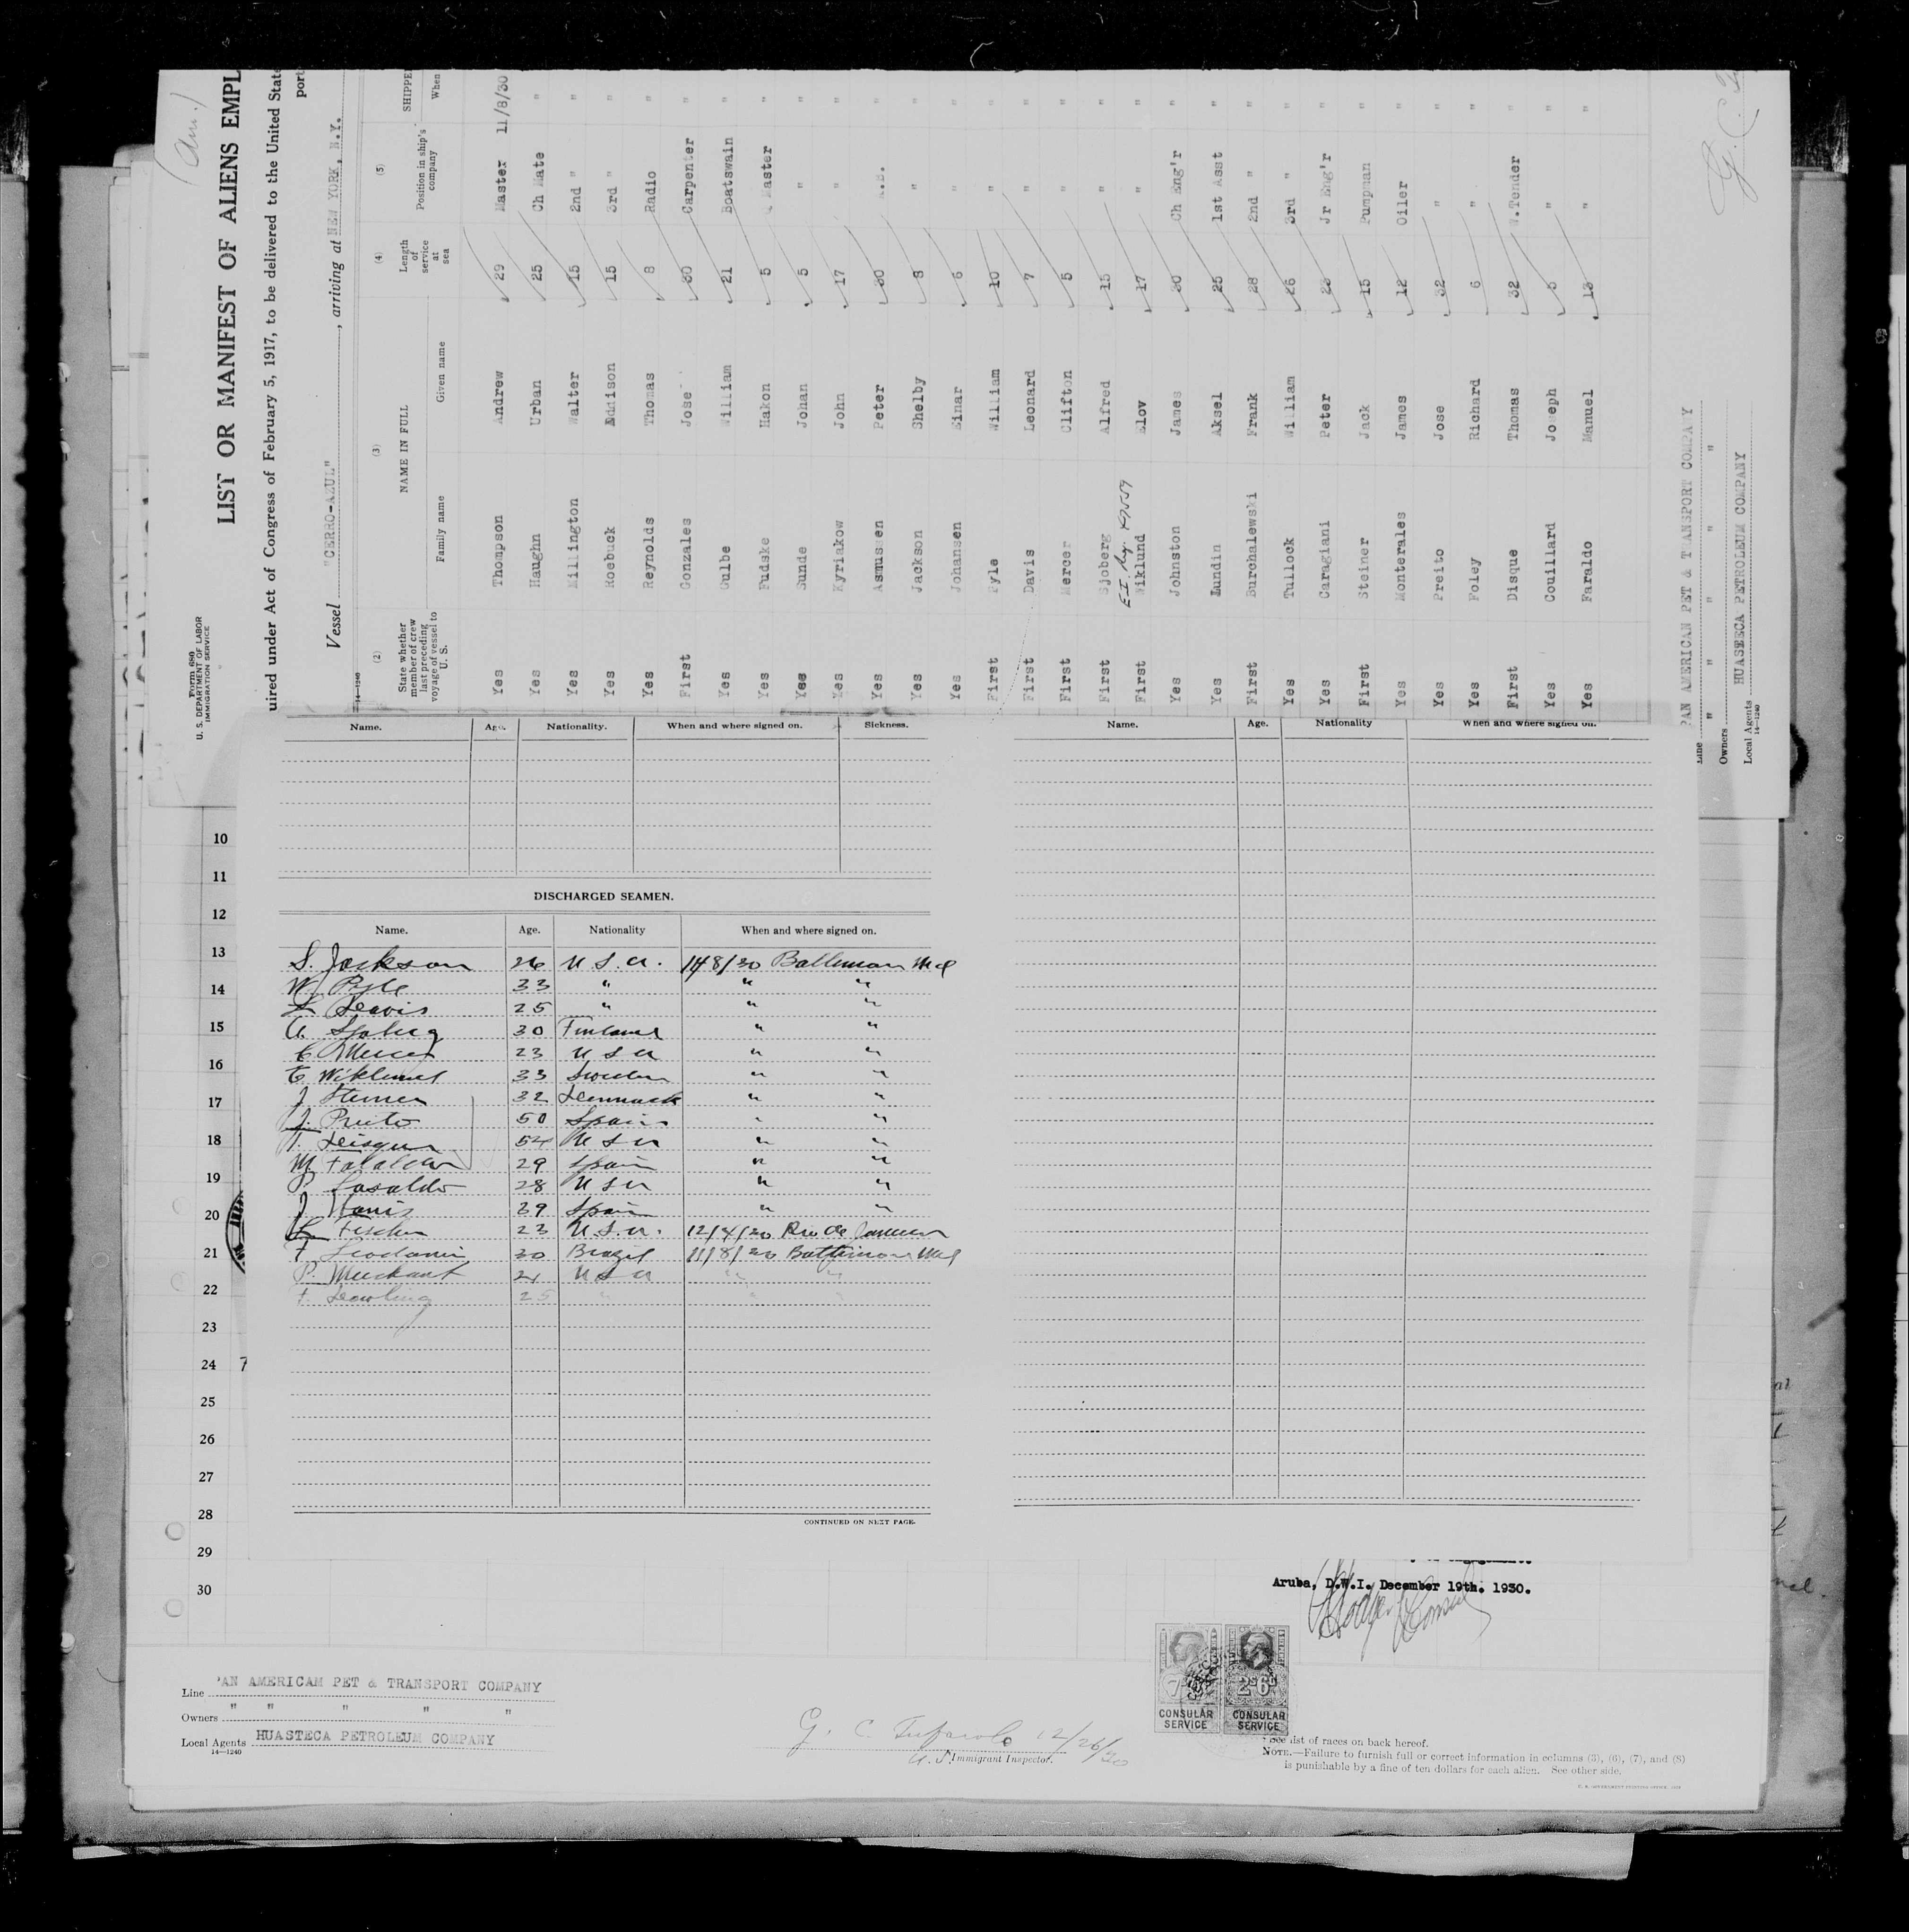 (Am.)
Form 680
U. S. DEPARTMENT OF LABOR
IMMIGRATION SERVICE
LIST OR MANIFEST OF ALIENS EMPL
uired under Act of Congress of February 5, 1917, to be delivered to the United State
port
Vessel "CERRO-AZUL", arriving at NEW YORK, N.Y.
14—1240
(2) (3) (4) (5)
State whether member of crew last preceding voyage of vessel to U. S. NAME IN FULL Length of service at sea Position in ship's company SHIPPE
Family name Given name When
Yes Thompson Andrew 29 Master 11/8/30
Yes Haughn Urban 25 Ch Mate "
Yes Millington Walter 15 2nd " "
Yes Roebuck Eddison 15 3rd " "
Yes Reynolds Thomas 8 Radio "
First Gonzales Jose 30 Carpenter "
Yes Gulbe William 21 Boatswain "
Yes Fudske Hakon 5 Q Master "
Yes Sunde Johan 5 " "
Yes Kyriakow John 17 " "
Yes Asmussen Peter 30 A.B. "
Yes Jackson Shelby 8 " "
Yes Johansen Einar 6 " "
First Pyle William 10 " "
First Davis Leonard 7 " "
First Mercer Clifton 5 " "
First Sjoberg Alfred 15 " "
E.I. Reg.
First Wiklund Elov 17 " "
Yes Johnston James 30 Ch Eng'r "
Yes Lundin Aksel 25 1st Asst "
First Burchalewski Frank 28 2nd " "
Yes Tullock William 26 3rd " "
Yes Caragiani Peter 23 Jr Eng'r "
First Steiner Jack 15 Pumpman "
Yes Monterales James 12 Oiler "
Yes Preito Jose 32 " "
Yes Foley Richard 6 " "
First Disque Thomas 32 W.Tender "
Yes Couillard Joseph 5 " "
Yes Faraldo Manuel 13 " "
Line PAN AMERICAN PET & T ANSPORT COMPA Y
Owners " " " " "
Local Agents HUASEECA PETROLEUM COMPANY
14—1240
G. C.
Name. Age. Nationality. When and where signed on. Sickness.
Name. Age. Nationality When and where signed on.
DISCHARGED SEAMEN.
Name. Age. Nationality When and where signed on.
S. Jackson 26 U.S.A. 11/8/30 Baltimore Md
W. Pyle 33 " " "
L Davis 25 " " "
A. Sjoberg 30 Finland " "
C Mercer 23 U S A " "
E Wiklund 33 Sweden " "
J Steiner 32 Denmark " "
J. Prieto 50 Spain " "
T. Disque 54 U S A " "
M. Faraldo 29 Spain " "
P. Losaldo 28 U S A " "
J 39 Spain " "
L Fischer 23 U.S.A. 12/4/30 Rio de Janeiro
F. 30 Brazil 11/8/30 Baltimore Md
P. Merchant 21 U S A " "
F. Dowling 25 " " "
CONTINUED ON NEXT PAGE.
10
11
12
13
14
15
16
17
18
19
20
21
22
23
24 7
25
26
27
28
29
30
Aruba, D.W.I. December 19th. 1930.
Consul
7 2s 6d
CONSULAR SERVICE CONSULAR SERVICE
Line PAN AMERICAM PET & TRANSPORT COMPANY
Owners " " " " "
Local Agents HUASTECA PETROLEUM COMPANY
14—1240
G. C. 12/26/30
U. S. Immigrant Inspector.
* See list of races on back hereof.
NOTE.—Failure to furnish full or correct information in columns (3), (6), (7), and (8)
is punishable by a fine of ten dollars for each alien. See other side.